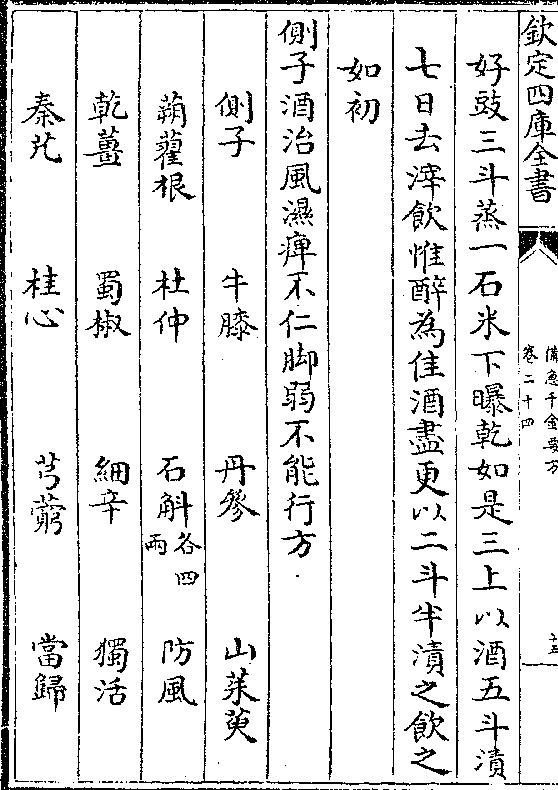 欽定四庫全書
備急千金要方
卷二十四
十三
好豉三斗蒸一石米下曝乾如是三上以酒五斗漬
七日去滓飲惟醉為佳酒盡更以二斗半漬之飲之
如初
側子酒治風濕痺不仁脚弱不能行方
側子 牛膝 丹參 山茱萸
蒴藋根 杜仲 石斛各四兩 防風
乾薑 蜀椒 細辛 獨活
秦艽 桂心 芎藭 當歸